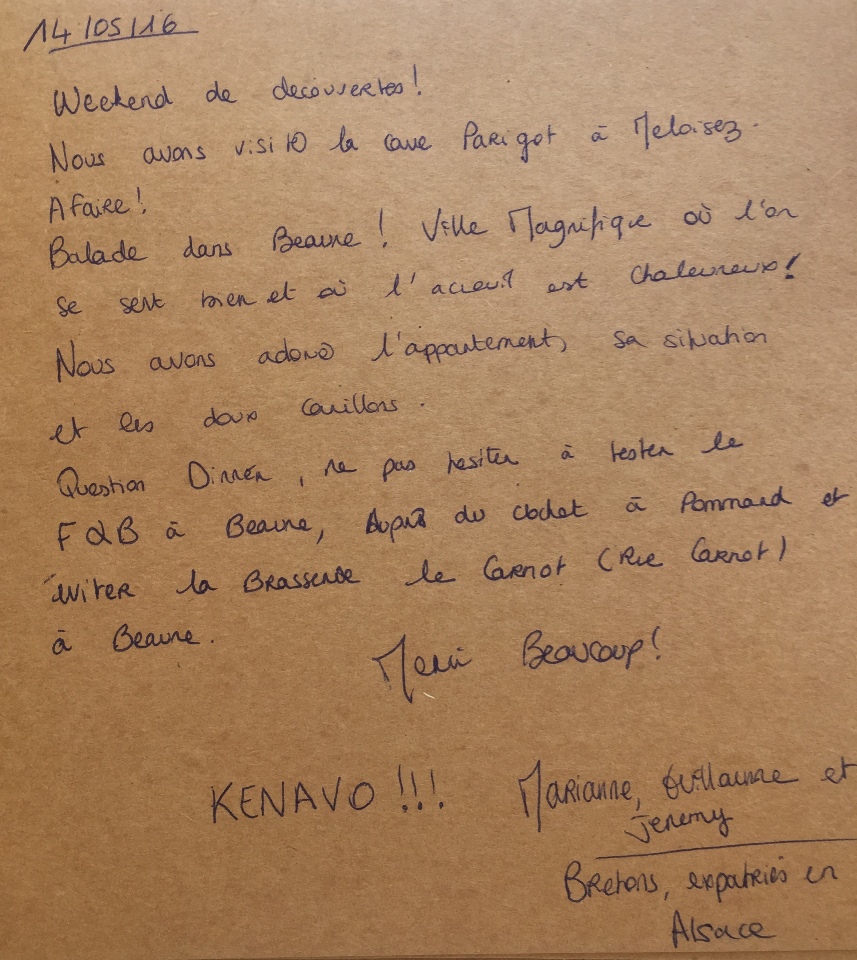 14/05/16
Weekend de decouvertes!
Nous avons visité la cave Parigot à Meloisez.
A faire!
Balade dans Beaune! Ville Magnifique où l'on
se sent bien et où l'accueil est chaleureux!
Nous avons adoré l'appartement, sa situation
et les doux carillons.
Question Dinner, ne pas hesiter à tester le
F&B à Beaune, du clochet à Pommard et
éviter la Brasserie le Carnot (Rue Carnot)
à Beaune.
Merci Beaucoup!
KENAVO!!!
Marianne, Guillaume et
Jeremy
Bretons, expatriés en
Alsace